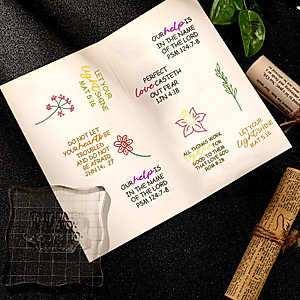 OUR help IS
IN THE NAME
OF THE LORD
PSM.124:7-8
LET YOUR
light SHINE
MAT 5:16
PERFECT
love CASTETH
OUT FEAR
1JN.4:18
DO NOT LET
YOUR hearts BE
TROUBLED
AND DO NOT
BE AFRAID
JHN 14: 27
ALL THINGS WORK
FOR
GOOD TO THEM
THAT LOVE GOD
ROM 8:28
LET YOUR
light SHINE
MAT 5:16
OUR help IS
IN THE NAME
OF THE LORD
PSM.124:7-8